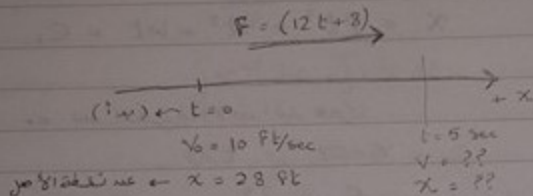 F = (12t+8)
t = 0
+ x
V₀ = 10 ft/sec
t = 5 sec
V = ??
x = 28 ft
x = ??